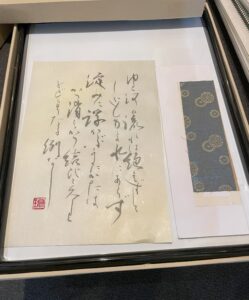 ゆく河の流れは絶えずして
しかももとの水にあらす
淀みに浮かぶうたかたは
かつ消えかつ結びて久しく
とどまりたる例なし